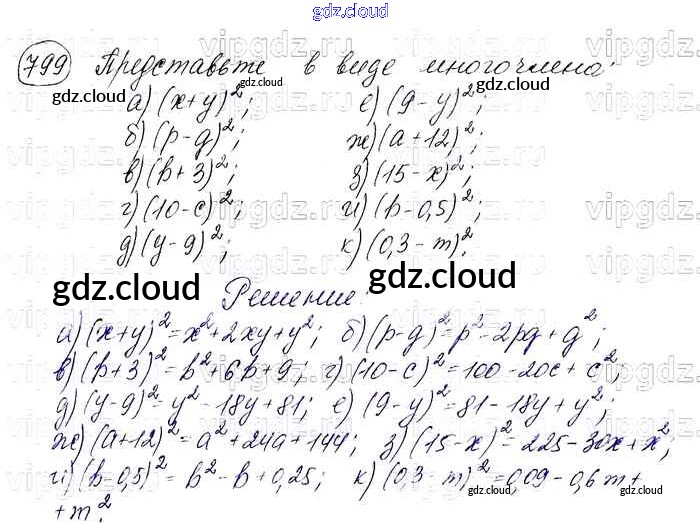 gdz.cloud
799 Представьте в виде многочлена:
gdz.cloud gdz.cloud
а) (x+y)²; е) (9-y)²;
б) (p-g)²; ж) (a+12)²;
в) (b+3)²; з) (15-x)²;
г) (10-c)²; и) (b-0,5)²;
д) (y-9)²; к) (0,3-m)².
gdz.cloud Решение: gdz.cloud
а) (x+y)²=x²+2xy+y²; б) (p-g)²=p²-2pg+g²;
в) (b+3)²=b²+6b+9; г) (10-c)²=100-20c+c²;
д) (y-9)²=y²-18y+81; е) (9-y)²=81-18y+y²;
ж) (a+12)²=a²+24a+144; з) (15-x)²=225-30x+x²;
и) (b-0,5)²=b²-b+0,25; к) (0,3-m)²=0,09-0,6m+
+m².
gdz.cloud gdz.cloud
vipgdz.ru